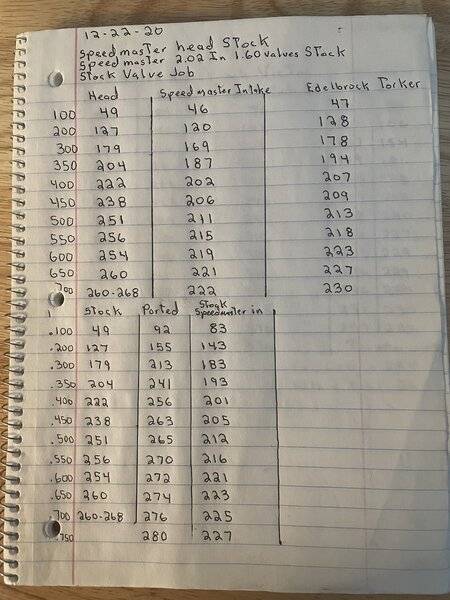 12-22-20
Speedmaster head Stock
Speedmaster 2.02 In 1.60 valves Stock
Stock Valve Job
Head Speedmaster Intake Edelbrock Torker
100 49 46 47
200 127 120 128
300 179 169 178
350 204 187 194
400 222 202 207
450 238 206 209
500 251 211 213
550 256 215 218
600 254 219 223
650 260 221 227
700 260-268 222 230
Stock Ported Stock Speedmaster in
.100 49 92 83
.200 127 155 143
.300 179 213 183
.350 204 241 193
.400 222 256 201
.450 238 263 205
.500 251 265 212
.550 256 270 216
.600 254 272 221
.650 260 274 223
.700 260-268 276 225
.750 280 227